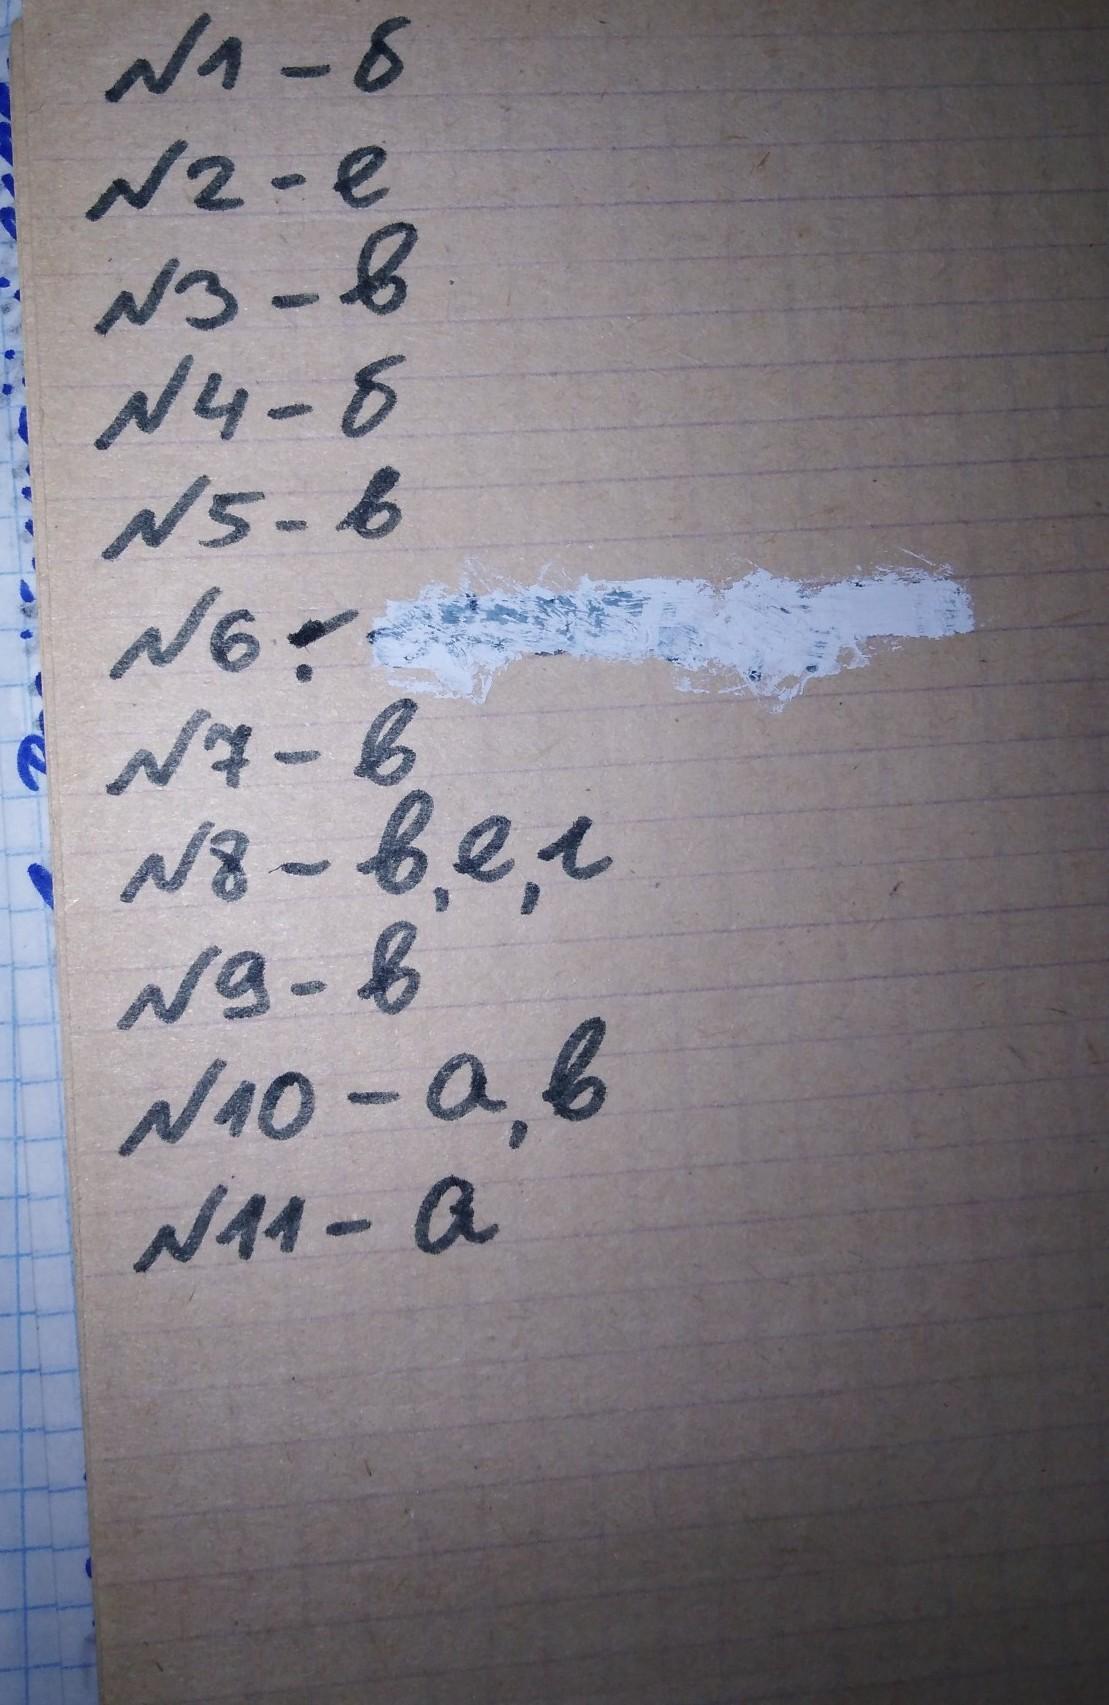 №1 - б
№2 - е
№3 - в
№4 - б
№5 - в
№6 :
№7 - в
№8 - в, е, г
№9 - в
№10 - а, в
№11 - а